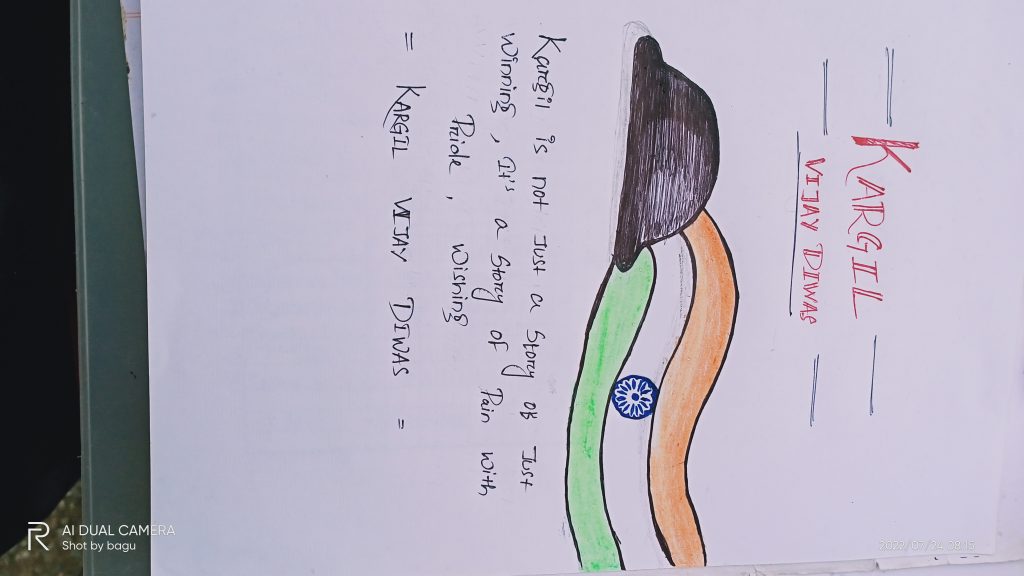 KARGIL
VIJAY DIWAS
Kargil is not Just a Story of Just
Winning, It's a Story of Pain with
Pride, Wishing
= KARGIL VIJAY DIWAS =
AI DUAL CAMERA
Shot by bagu
2022/07/24 08:15